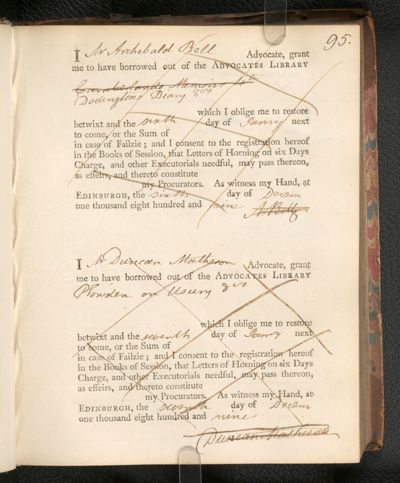 95.
I Mr Archibald Bell Advocate, grant
me to have borrowed out of the ADVOCATES LIBRARY
Cumberlands Memoirs 4to
Dodington's Diary 8vo
which I oblige me to restore
betwixt and the sixth day of Janry next
to come, or the Sum of
in case of Failzie; and I consent to the registration hereof
in the Books of Session, that Letters of Horning on six Days
Charge, and other Executorials needful, may pass thereon,
as effeirs, and thereto constitute
my Procurators. As witness my Hand, at
EDINBURGH, the sixth day of Decem
one thousand eight hundred and nine
A Bell
I Mr Duncan Matheson Advocate, grant
me to have borrowed out of the ADVOCATES LIBRARY
Plowden on Usury 8vo
which I oblige me to restore
betwixt and the seventh day of Janry next
to come, or the Sum of
in case of Failzie; and I consent to the registration hereof
in the Books of Session, that Letters of Horning on six Days
Charge, and other Executorials needful, may pass thereon,
as effeirs, and thereto constitute
my Procurators. As witness my Hand, at
EDINBURGH, the seventh day of Decem
one thousand eight hundred and nine
Duncan Matheson